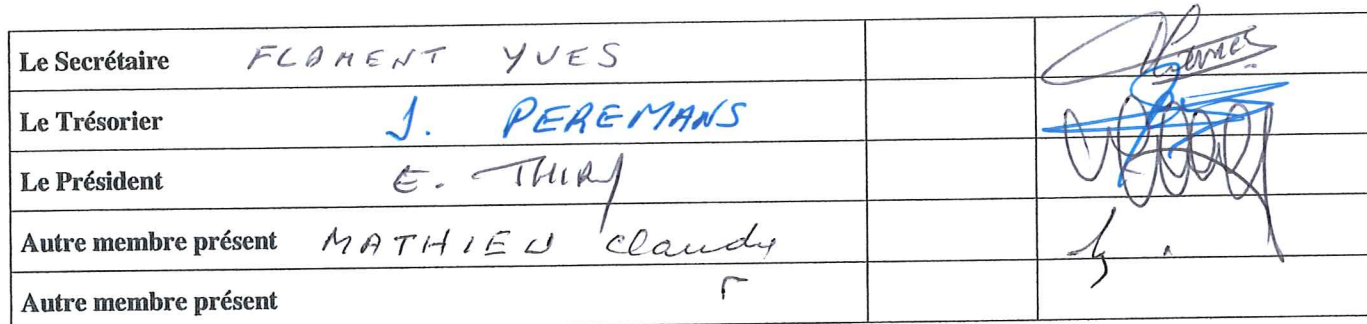 Le Secrétaire FLAMENT YVES
Le Trésorier J. PEREMANS
Le Président E. THIRY
Autre membre présent MATHIEU Claudy
Autre membre présent